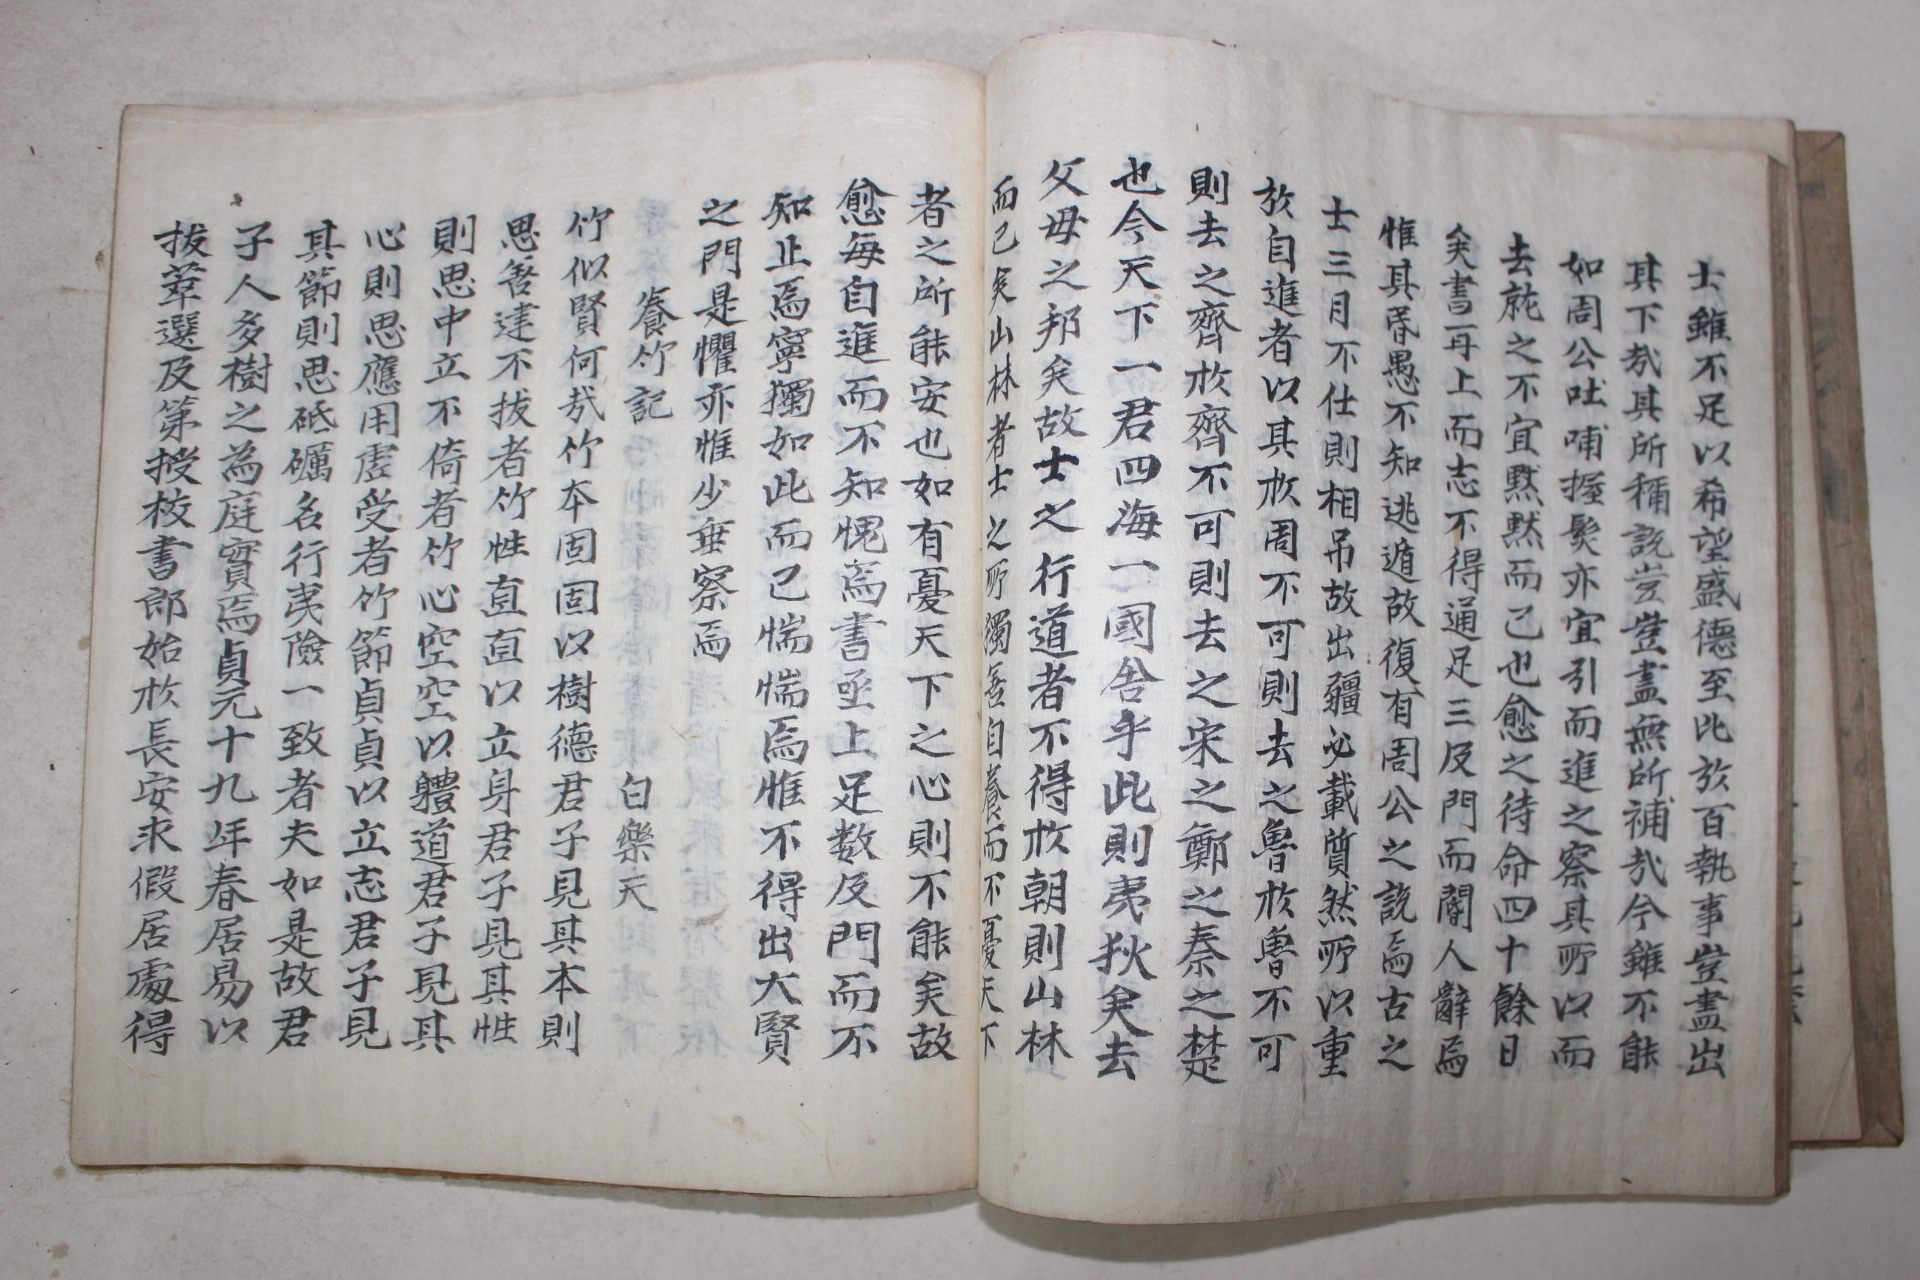 士雖不足以希望盛德至比於百執事豈盡出
其下哉其所稱說豈豈盡無所補哉今雖不能
如周公吐哺握髮亦宜引而進之察其所以而
去就之不宜默默而已也愈之待命四十餘日
矣書再上而志不得通足三及門而閽人辭焉
惟其昏愚不知逃遁故復有周公之說焉古之
士三月不仕則相吊故出疆必載質然所以重
於自進者以其於周不可則去之魯於魯不可
則去之齊於齊不可則去之宋之鄭之秦之楚
也今天下一君四海一國舍乎此則夷狄矣去
父母之邦矣故士之行道者不得於朝則山林
而已矣山林者士之所獨善自養而不憂天下
者之所能安也如有憂天下之心則不能矣故
愈每自進而不知愧焉書亟上足数及門而不
知止焉寧獨如此而已惴惴焉惟不得出大賢
之門是懼亦惟少垂察焉
養竹記 白樂天
竹似賢何哉竹本固固以樹德君子見其本則
思善建不拔者竹性直直以立身君子見其性
則思中立不倚者竹心空空以軆道君子見其
心則思應用虛受者竹節貞貞以立志君子見
其節則思砥礪名行夷險一致者夫如是故君
子人多樹之為庭實焉貞元十九年春居易以
拔萃選及第授校書郎始於長安求假居處得